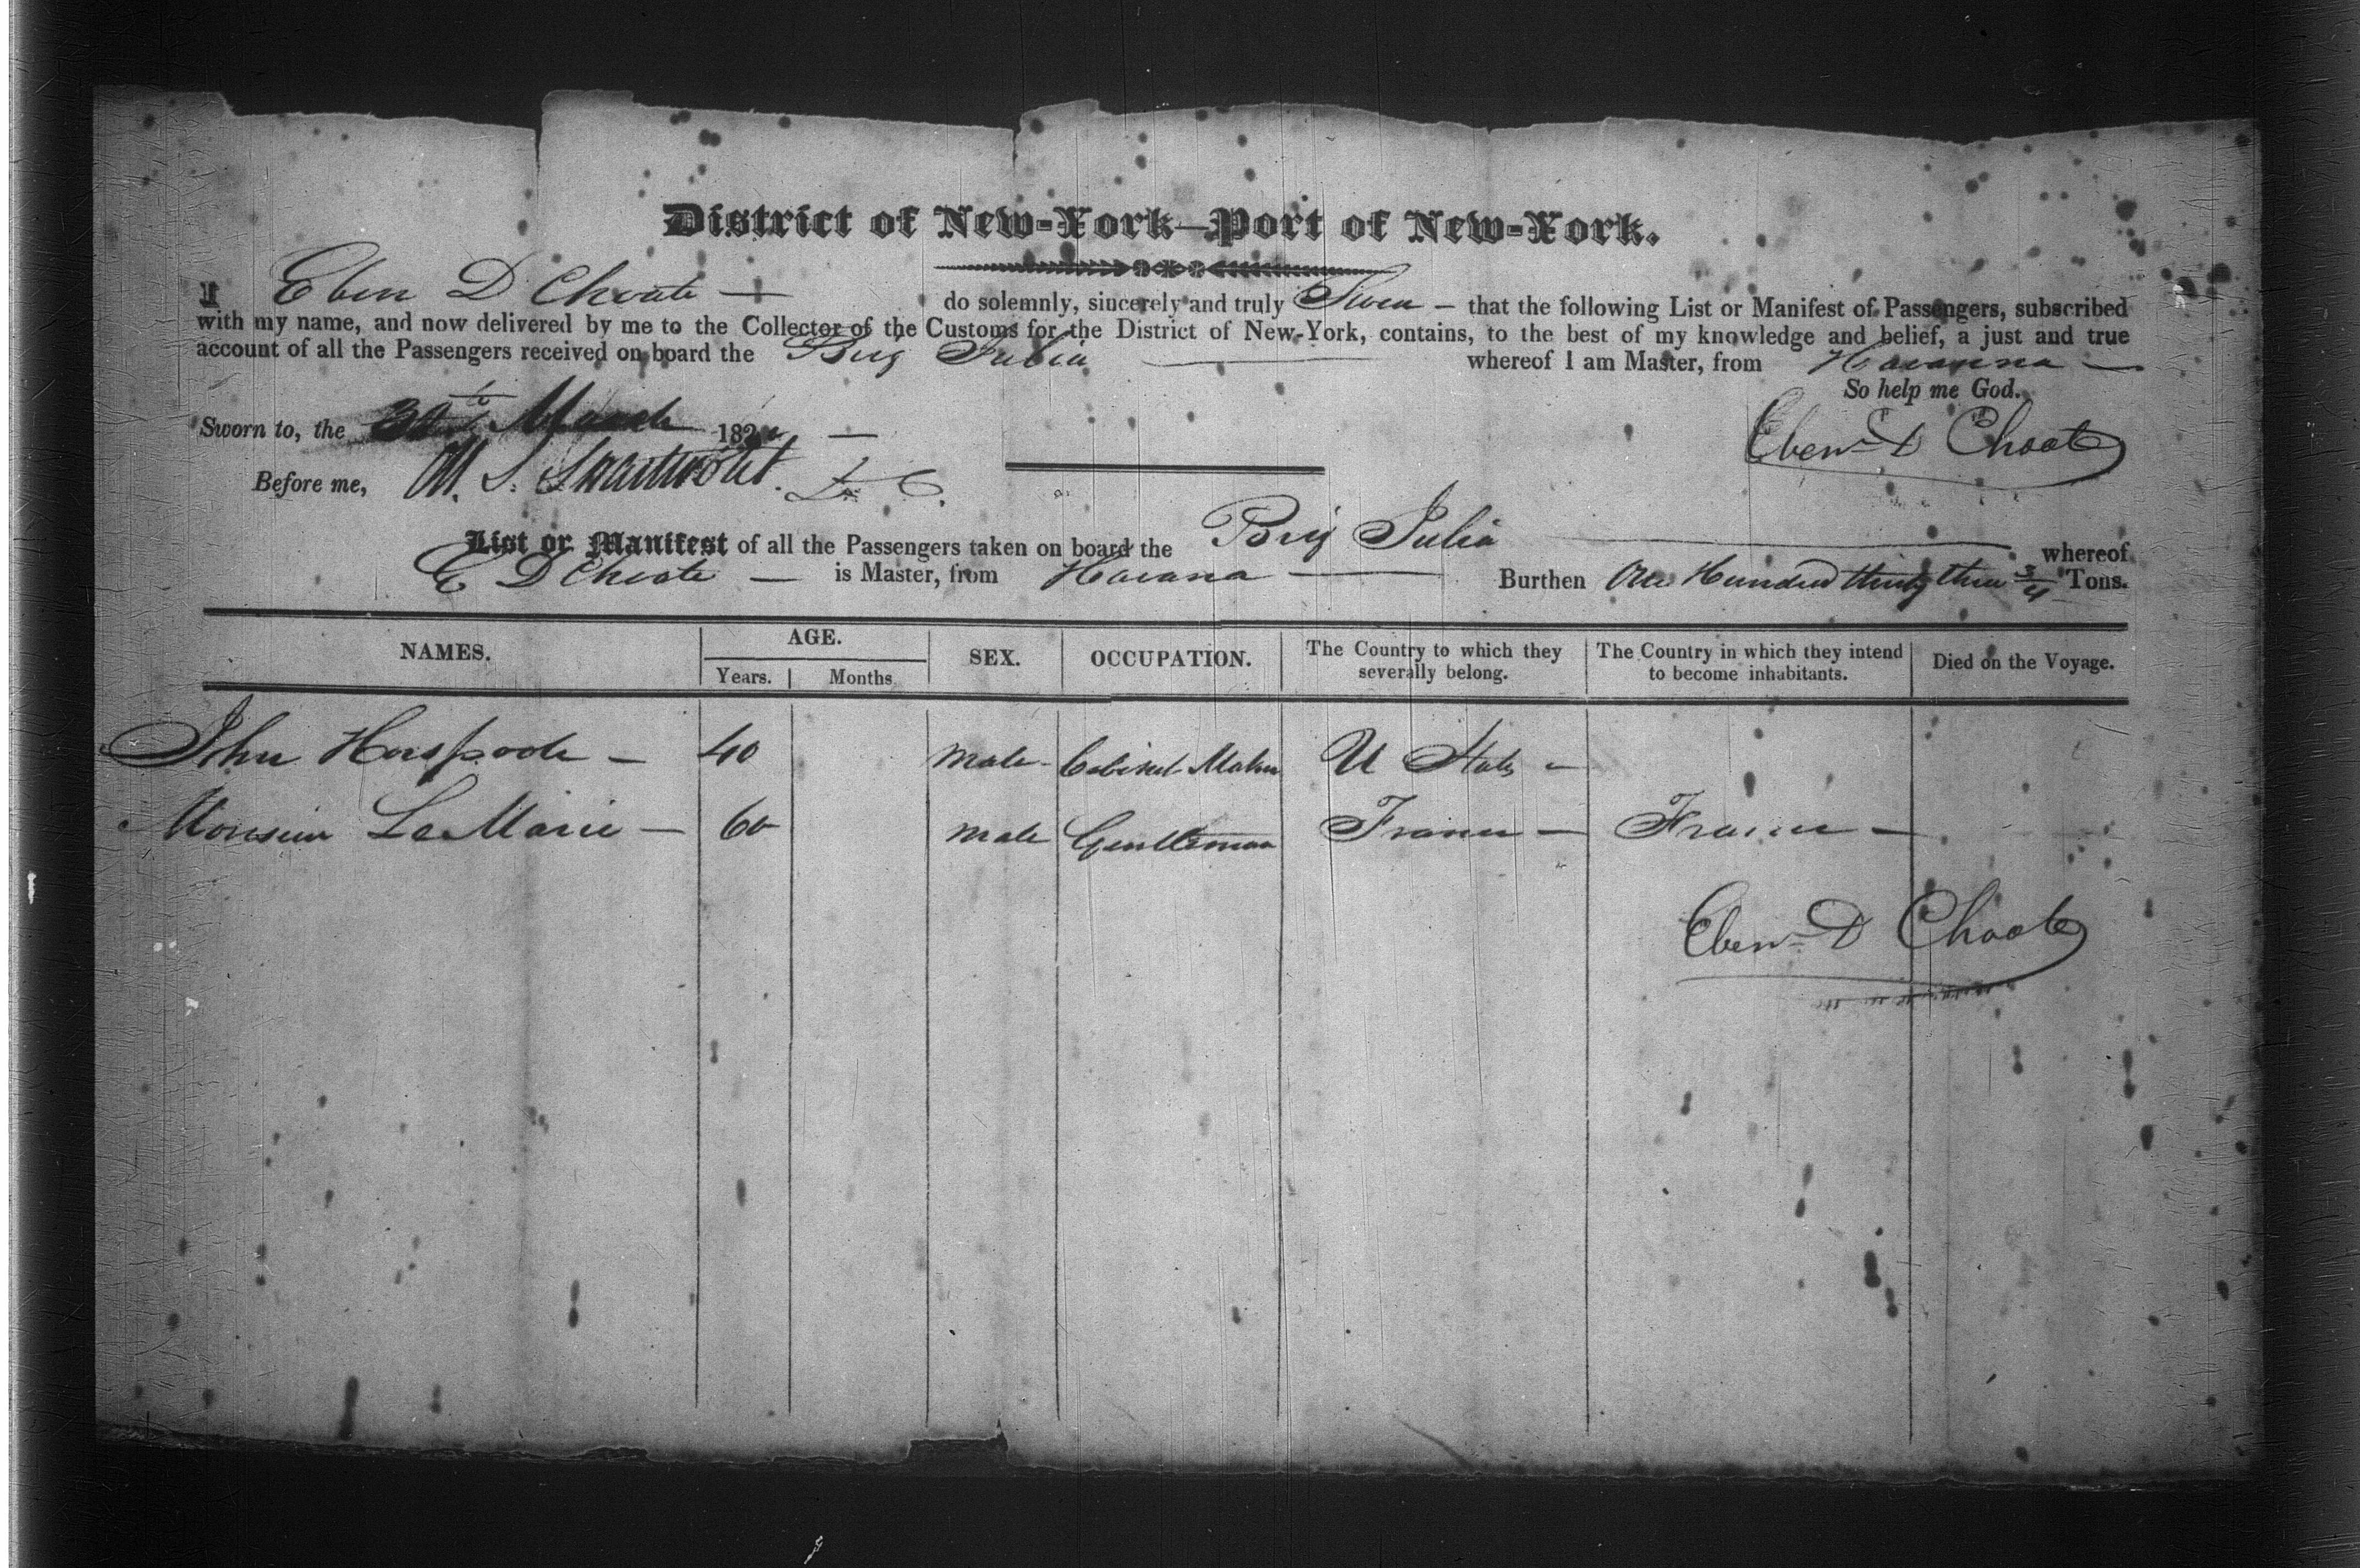 District of New-York—Port of New-York.
I Eben D Choate — do solemnly, sincerely and truly Swear — that the following List or Manifest of Passengers, subscribed
with my name, and now delivered by me to the Collector of the Customs for the District of New-York, contains, to the best of my knowledge and belief, a just and true
account of all the Passengers received on board the Brig Julia — whereof I am Master, from Havanna —
So help me God.
Sworn to, the 30th March 182 —
Ebenr D Choate
Before me, M. S. Swartwout. D C.
List or Manifest of all the Passengers taken on board the Brig Julia — whereof
E D Choate — is Master, from Havana — Burthen One Hundred thirty three 3/4 Tons.
NAMES. AGE. SEX. OCCUPATION. The Country to which they severally belong. The Country in which they intend to become inhabitants. Died on the Voyage.
Years. Months
John — 40 male - Cabinet Maker U States -
Monsieur LeMarie — 60 male Gentleman France — France —
Ebenr D Choate